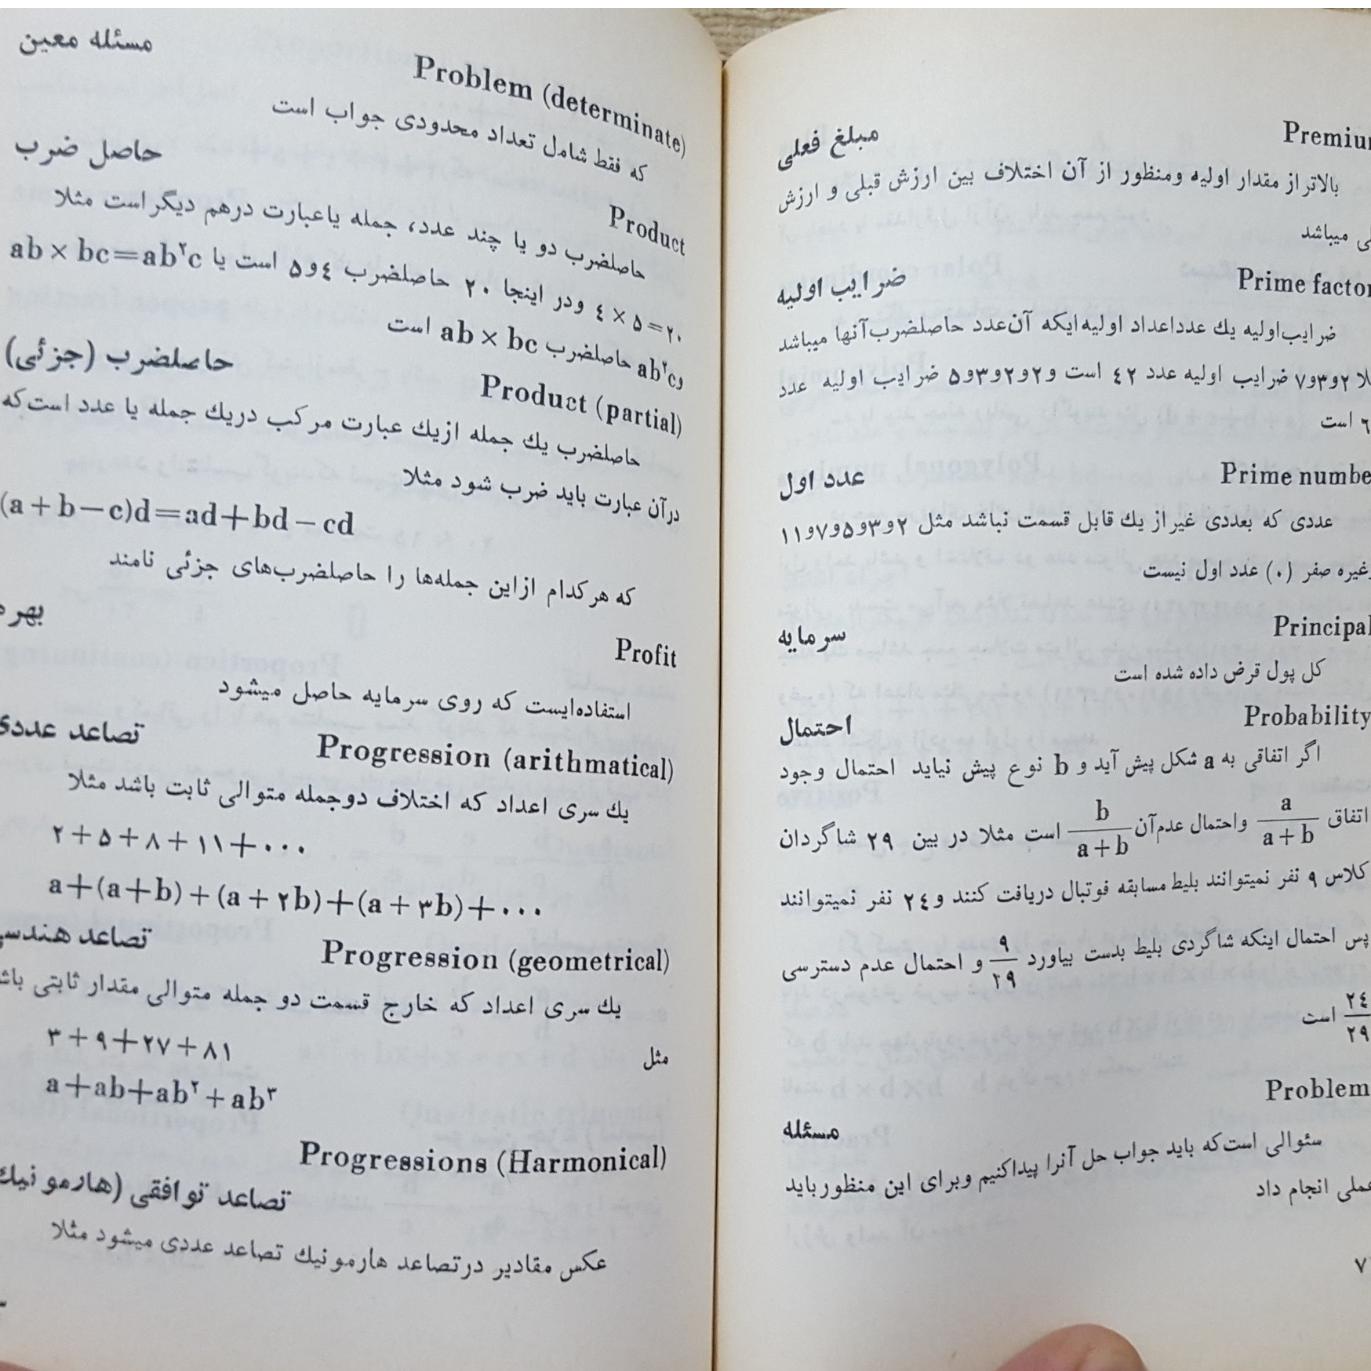 Premiu
مبلغ فعلی
بالاتر از مقدار اولیه ومنظور از آن اختلاف بین ارزش قبلی و ارزش
میباشد
Prime factor
ضرایب اولیه
ضرایب اولیه یك عدد اعداد اولیه ایکه آن عدد حاصلضرب آنها میباشد
۲و۳و۷ ضرایب اولیه عدد ٤۲ است و ۲و۲و۳و۵ ضرایب اولیه عدد
است
Prime numbe
عدد اول
عددی که بعددی غیر از یك قابل قسمت نباشد مثل ۲و۳و۵و۷و۱۱
وغیره صفر (۰) عدد اول نیست
Principal
سرمایه
کل پول قرض داده شده است
Probability
احتمال
اگر اتفاقی به a شکل پیش آید و b نوع پیش نیاید احتمال وجود
اتفاق a/(a+b) واحتمال عدم آن b/(a+b) است مثلا در بین ۲۹ شاگردان
کلاس ۹ نفر نمیتوانند بلیط مسابقه فوتبال دریافت کنند و ۲٤ نفر نمیتوانند
پس احتمال اینکه شاگردی بلیط بدست بیاورد ۹/۲۹ و احتمال عدم دسترسی
۲٤/۲۹ است
Problem
مسئله
سئوالی است که باید جواب حل آنرا پیدا کنیم وبرای این منظور باید
عملی انجام داد
۷
Problem (determinate)
مسئله معین
که فقط شامل تعداد محدودی جواب است
Product
حاصل ضرب
حاصلضرب دو یا چند عدد، جمله یا عبارت درهم دیگر است مثلا
۲۰=۵×٤ ودر اینجا ۲۰ حاصلضرب ٤و۵ است یا ab×bc=ab²c
وab²c حاصلضرب ab×bc است
Product (partial)
حاصلضرب (جزئی)
حاصلضرب یك جمله از یك عبارت مرکب دریك جمله یا عدد است که
درآن عبارت باید ضرب شود مثلا
(a+b−c)d=ad+bd−cd
که هرکدام ازاین جمله‌ها را حاصلضرب‌های جزئی نامند
Profit
بهره
استفاده‌ایست که روی سرمایه حاصل میشود
Progression (arithmatical)
تصاعد عددی
یك سری اعداد که اختلاف دوجمله متوالی ثابت باشد مثلا
۲+۵+۸+۱۱+۰۰۰
a+(a+b)+(a+۲b)+(a+۳b)+۰۰۰
Progression (geometrical)
تصاعد هندسی
یك سری اعداد که خارج قسمت دو جمله متوالی مقدار ثابتی باش
مثل
۳+۹+۲۷+۸۱
a+ab+ab²+ab³
Progressions (Harmonical)
تصاعد توافقی (هارمونیك
عکس مقادیر درتصاعد هارمونیك تصاعد عددی میشود مثلا